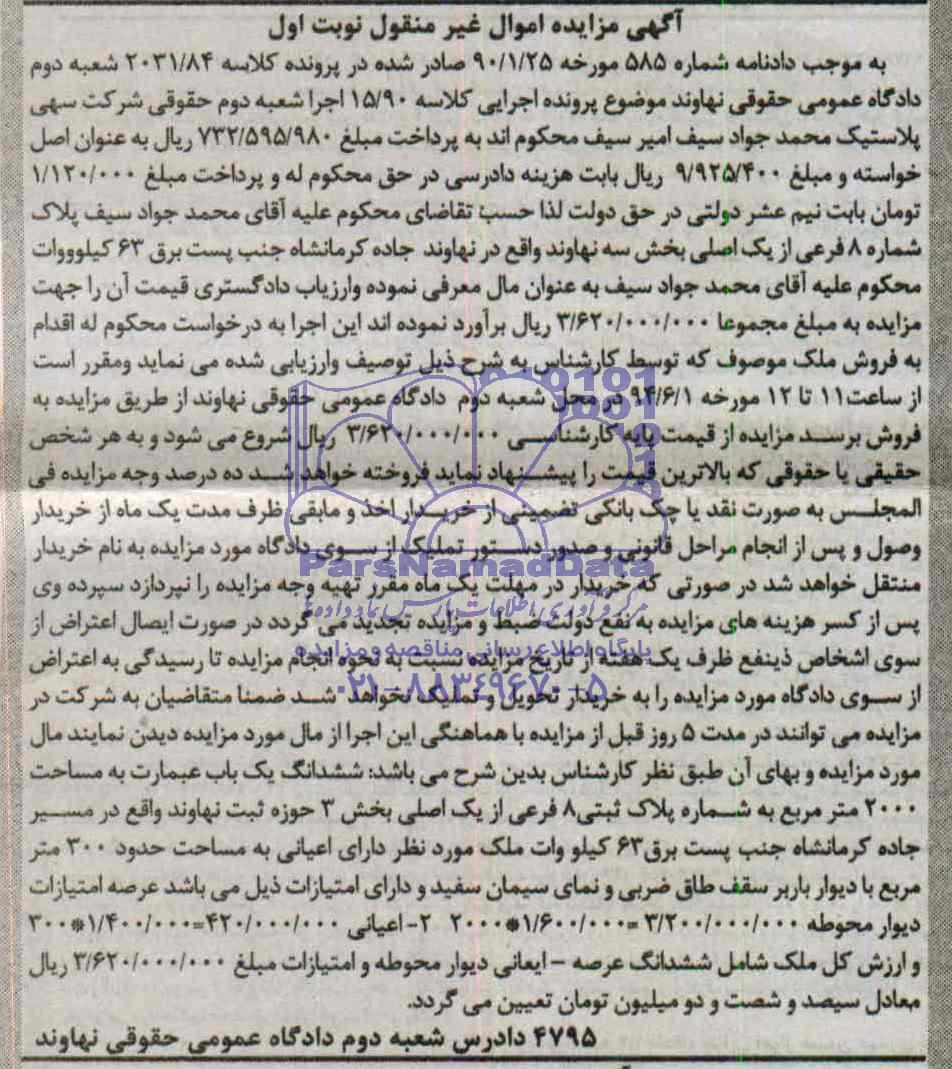 آگهی مزایده اموال غیر منقول نوبت اول
به موجب دادنامه شماره ۵۸۵ مورخه ۹۰/۱/۲۵ صادر شده در پرونده کلاسه ۲۰۳۱/۸۴ شعبه دوم
دادگاه عمومی حقوقی نهاوند موضوع پرونده اجرایی کلاسه ۱۵/۹۰ اجرا شعبه دوم حقوقی شرکت سهی
پلاستیک محمد جواد سیف امیر سیف محکوم اند به پرداخت مبلغ ۷۳۲/۵۹۵/۹۸۰ ریال به عنوان اصل
خواسته و مبلغ ۹/۹۲۵/۴۰۰ ریال بابت هزینه دادرسی در حق محکوم له و پرداخت مبلغ ۱/۱۲۰/۰۰۰
تومان بابت نیم عشر دولتی در حق دولت لذا حسب تقاضای محکوم علیه آقای محمد جواد سیف پلاک
شماره ۸ فرعی از یک اصلی بخش سه نهاوند واقع در نهاوند جاده کرمانشاه جنب پست برق ۶۳ کیلوووات
محکوم علیه آقای محمد جواد سیف به عنوان مال معرفی نموده وارزیاب دادگستری قیمت آن را جهت
مزایده به مبلغ مجموعا ۳/۶۲۰/۰۰۰/۰۰۰ ریال برآورد نموده اند این اجرا به درخواست محکوم له اقدام
به فروش ملک موصوف که توسط کارشناس به شرح ذیل توصیف وارزیابی شده می نماید ومقرر است
از ساعت۱۱ تا ۱۲ مورخه ۹۴/۶/۱ در محل شعبه دوم دادگاه عمومی حقوقی نهاوند از طریق مزایده به
فروش برسد مزایده از قیمت پایه کارشناسی ۳/۶۲۰/۰۰۰/۰۰۰ ریال شروع می شود و به هر شخص
حقیقی یا حقوقی که بالاترین قیمت را پیشنهاد نماید فروخته خواهد شد ده درصد وجه مزایده فی
المجلس به صورت نقد یا چک بانکی تضمینی از خریدار اخذ و مابقی ظرف مدت یک ماه از خریدار
وصول و پس از انجام مراحل قانونی و صدور دستور تملیک از سوی دادگاه مورد مزایده به نام خریدار
منتقل خواهد شد در صورتی که خریدار در مهلت یک ماه مقرر تهیه وجه مزایده را نپردازد سپرده وی
پس از کسر هزینه های مزایده به نفع دولت ضبط و مزایده تجدید می گردد در صورت ایصال اعتراض از
سوی اشخاص ذینفع ظرف یک هفته از تاریخ مزایده نسبت به نحوه انجام مزایده تا رسیدگی به اعتراض
از سوی دادگاه مورد مزایده را به خریدار تحویل و تملیک نخواهد شد ضمنا متقاضیان به شرکت در
مزایده می توانند در مدت ۵ روز قبل از مزایده با هماهنگی این اجرا از مال مورد مزایده دیدن نمایند مال
مورد مزایده و بهای آن طبق نظر کارشناس بدین شرح می باشد: ششدانگ یک باب عبمارت به مساحت
۲۰۰۰ متر مربع به شماره پلاک ثبتی۸ فرعی از یک اصلی بخش ۳ حوزه ثبت نهاوند واقع در مسیر
جاده کرمانشاه جنب پست برق۶۳ کیلو وات ملک مورد نظر دارای اعیانی به مساحت حدود ۳۰۰ متر
مربع با دیوار باربر سقف طاق ضربی و نمای سیمان سفید و دارای امتیازات ذیل می باشد عرصه امتیازات
دیوار محوطه ۳/۲۰۰/۰۰۰/۰۰۰=۱/۶۰۰/۰۰۰*۲۰۰۰ ۲- اعیانی ۴۲۰/۰۰۰/۰۰۰=۱/۴۰۰/۰۰۰*۳۰۰
و ارزش کل ملک شامل ششدانگ عرصه – ایعانی دیوار محوطه و امتیازات مبلغ ۳/۶۲۰/۰۰۰/۰۰۰ ریال
معادل سیصد و شصت و دو میلیون تومان تعیین می گردد.
۴۷۹۵ دادرس شعبه دوم دادگاه عمومی حقوقی نهاوند
ParsNamadData
مرکز فرآوری اطلاعات پارس نماد داده ها
پایگاه اطلاع رسانی مناقصه و مزایده
۰۲۱-۸۸۳۴۹۶۷۰-۵